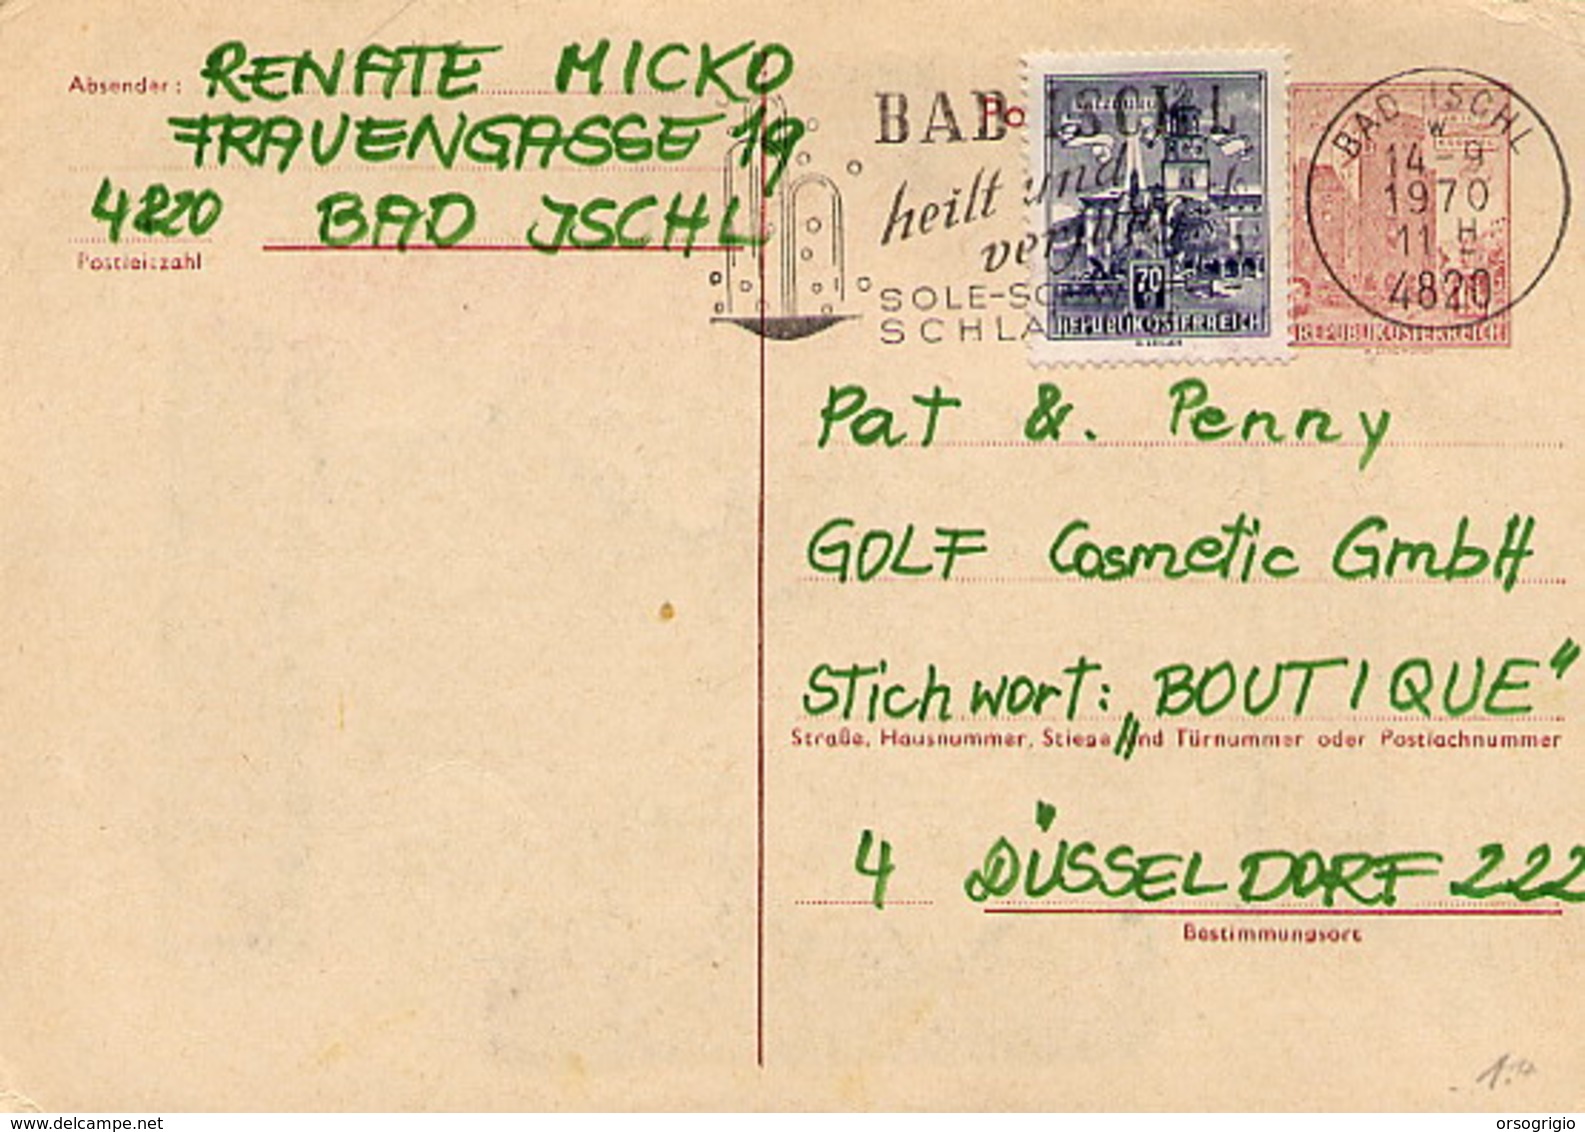 Absender: RENATE MICKO
FRAUENGASSE 19
4820 BAD ISCHL
Postleitzahl
BAD ISCHL
heilt und
verjüngt
SOLE-SCHWEFEL-
SCHLA
Po
70
REPUBLIK ÖSTERREICH
BAD ISCHL
w
14-9
1970
11 H
4820
REPUBLIK ÖSTERREICH
Pat &. Penny
GOLF Cosmetic GmbH
Stichwort: „BOUTIQUE"
Straße, Hausnummer, Stiege und Türnummer oder Postfachnummer
4 DÜSSELDORF 222
Bestimmungsort
delcampe.net
orsogrigio